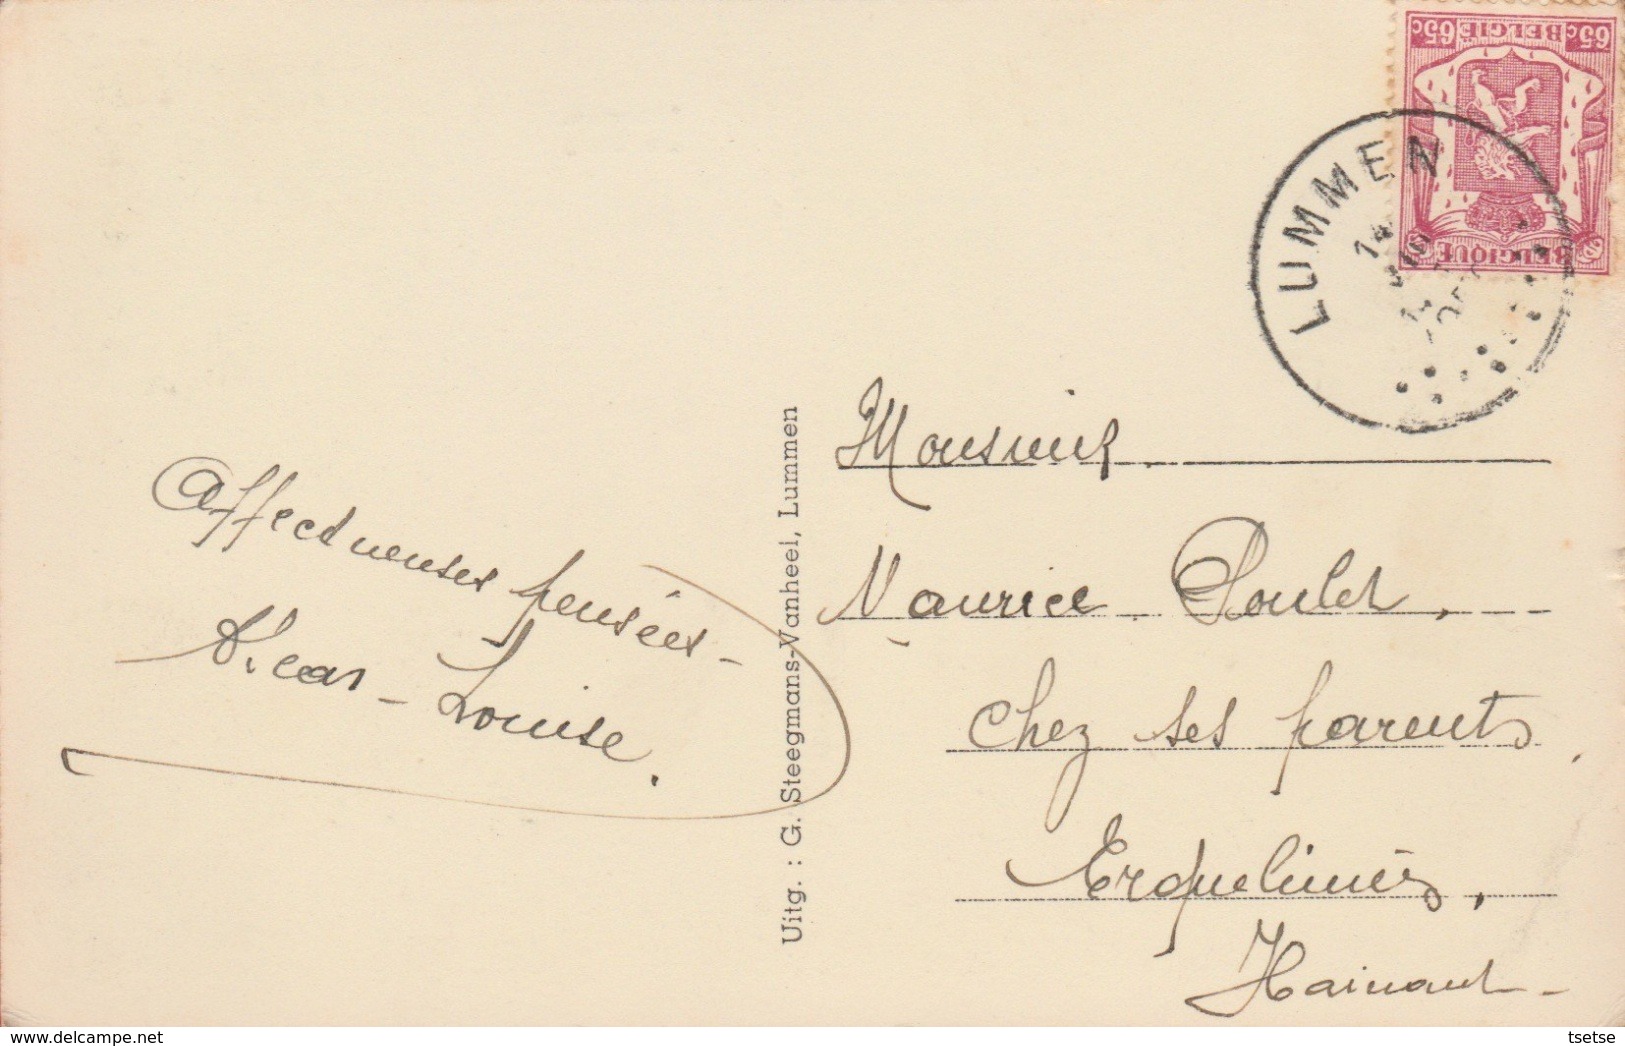 BELGIE 65c
65c
BELGIQUE
LUMMEN
14
Affectueuses pensées -
Louise.
Uitg. : G. Steegmans-Vanheel, Lummen
Monsieur
Maurice Poulet,
chez ses parents,
Erquelinnes,
Hainaut -
www.delcampe.net
tsetse